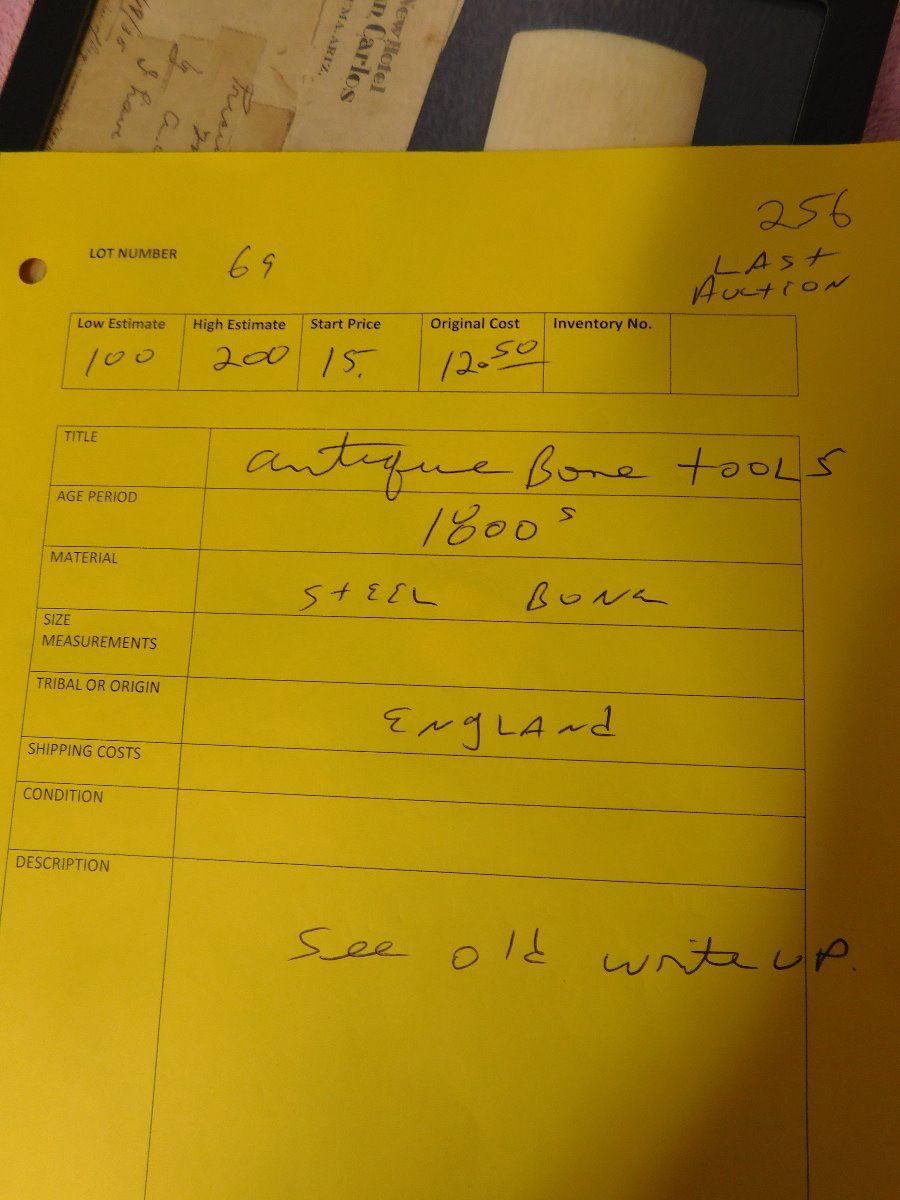 New Hotel
n Carlos
EMA, ARIZ.
256
LAST
AUCTION
LOT NUMBER 69
Low Estimate High Estimate Start Price Original Cost Inventory No.
100 200 15. 12.50
TITLE antique Bone tOOLS
AGE PERIOD 1800s
MATERIAL STEEL BONE
SIZE
MEASUREMENTS
TRIBAL OR ORIGIN ENgLANd
SHIPPING COSTS
CONDITION
DESCRIPTION
See old write UP.